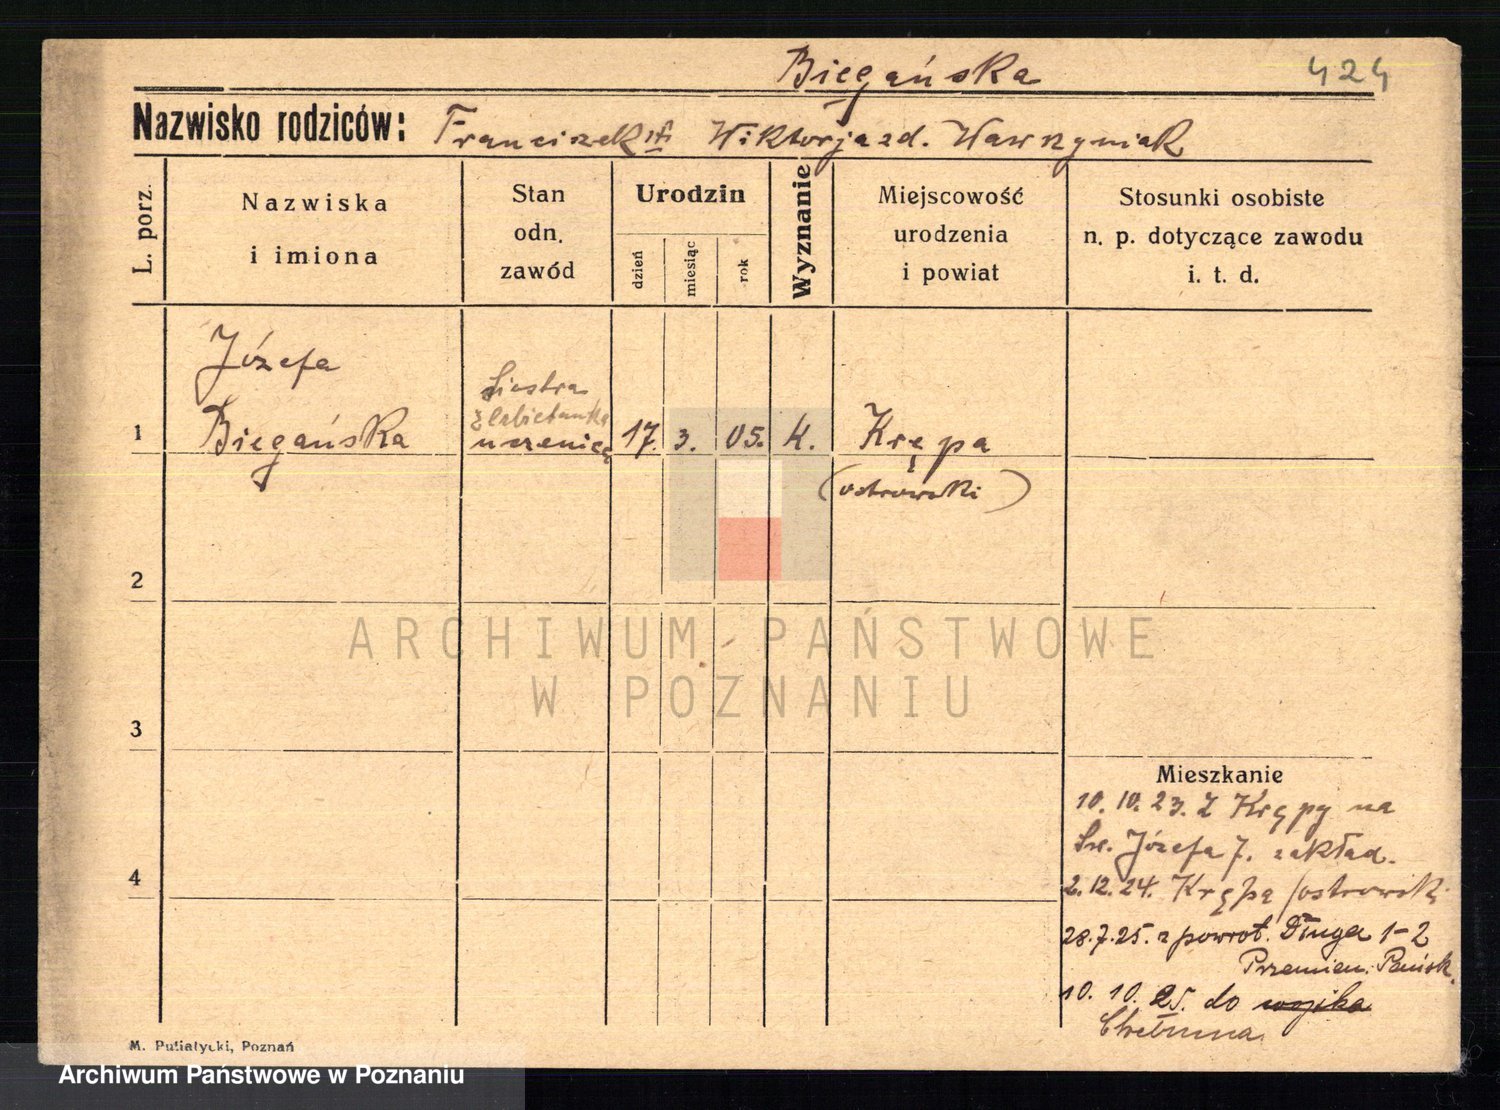 Biegańska
424
Nazwisko rodziców: Franciszek i Wiktorja zd. Wawrzyniak
L. porz.
Nazwiska
i imiona
Stan
odn.
zawód
Urodzin
dzień
miesiąc
rok
Wyznanie
Miejscowość
urodzenia
i powiat
Stosunki osobiste
n. p. dotyczące zawodu
i. t. d.
Józefa
Siostra
Elżbietanka
1 Biegańska uczenica 17. 3. 05. K. Krępa
(ostrowski)
2
ARCHIWUM PAŃSTWOWE
W POZNANIU
3
Mieszkanie
10. 10. 23. z Krępy na
Św. Józefa 7. zakład.
4
2. 12. 24. Krępa /ostrowski
28. 7. 25. z powrot. Długa 1-2
Przemien. Pańsk.
10. 10. 25. do
Chełmna
M. Putiatycki, Poznań
Archiwum Państwowe w Poznaniu